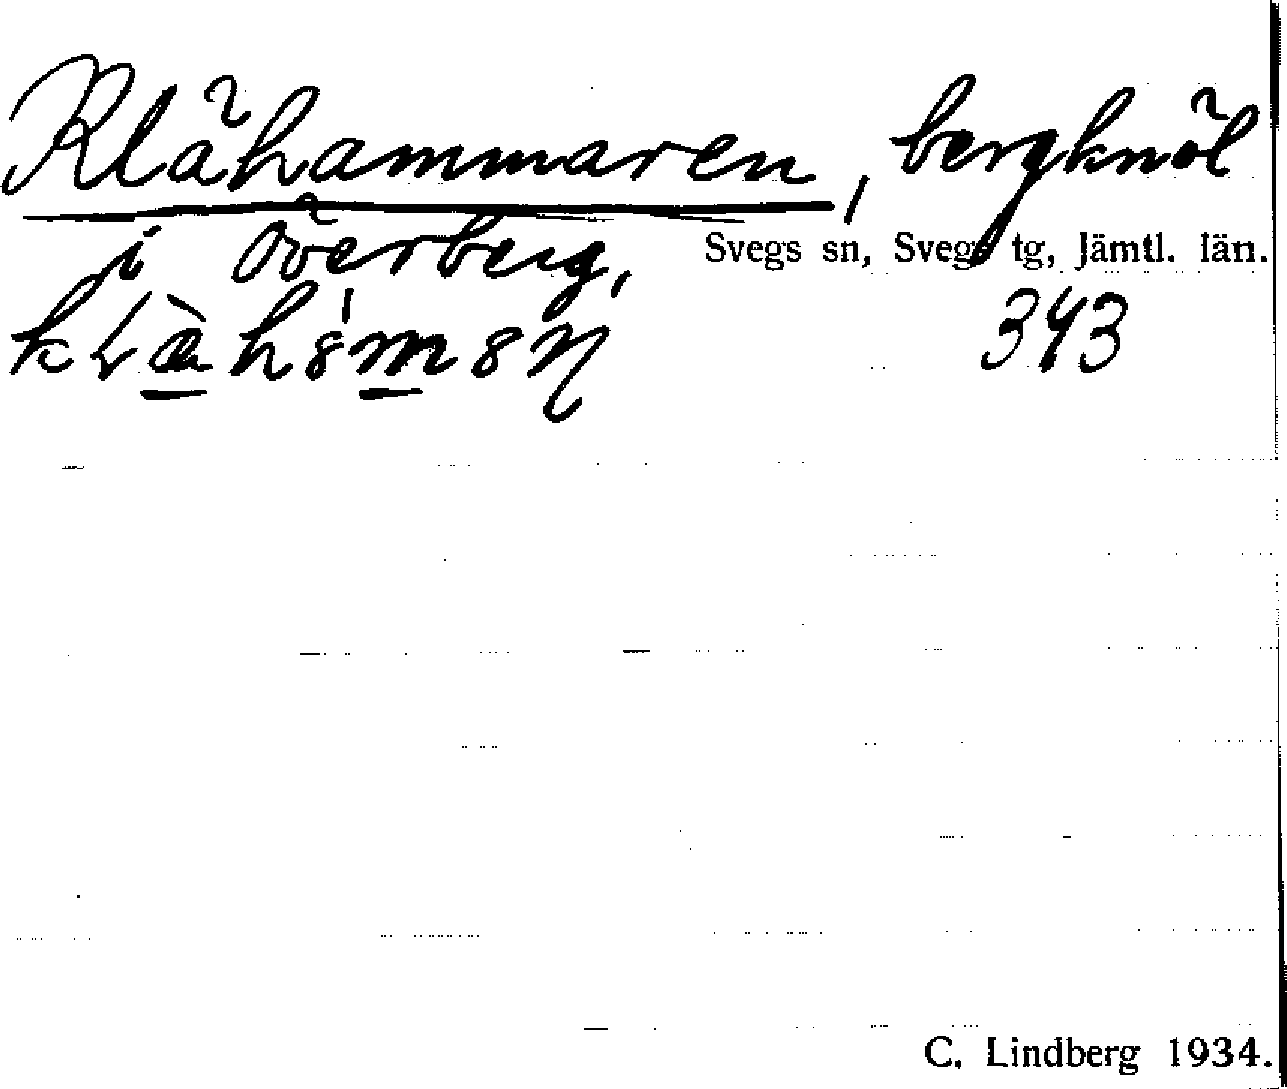 Klähammaren, bergknöl
i Överberg,
Svegs sn, Svegs tg, Jämtl. län.
343
C. Lindberg 1934.